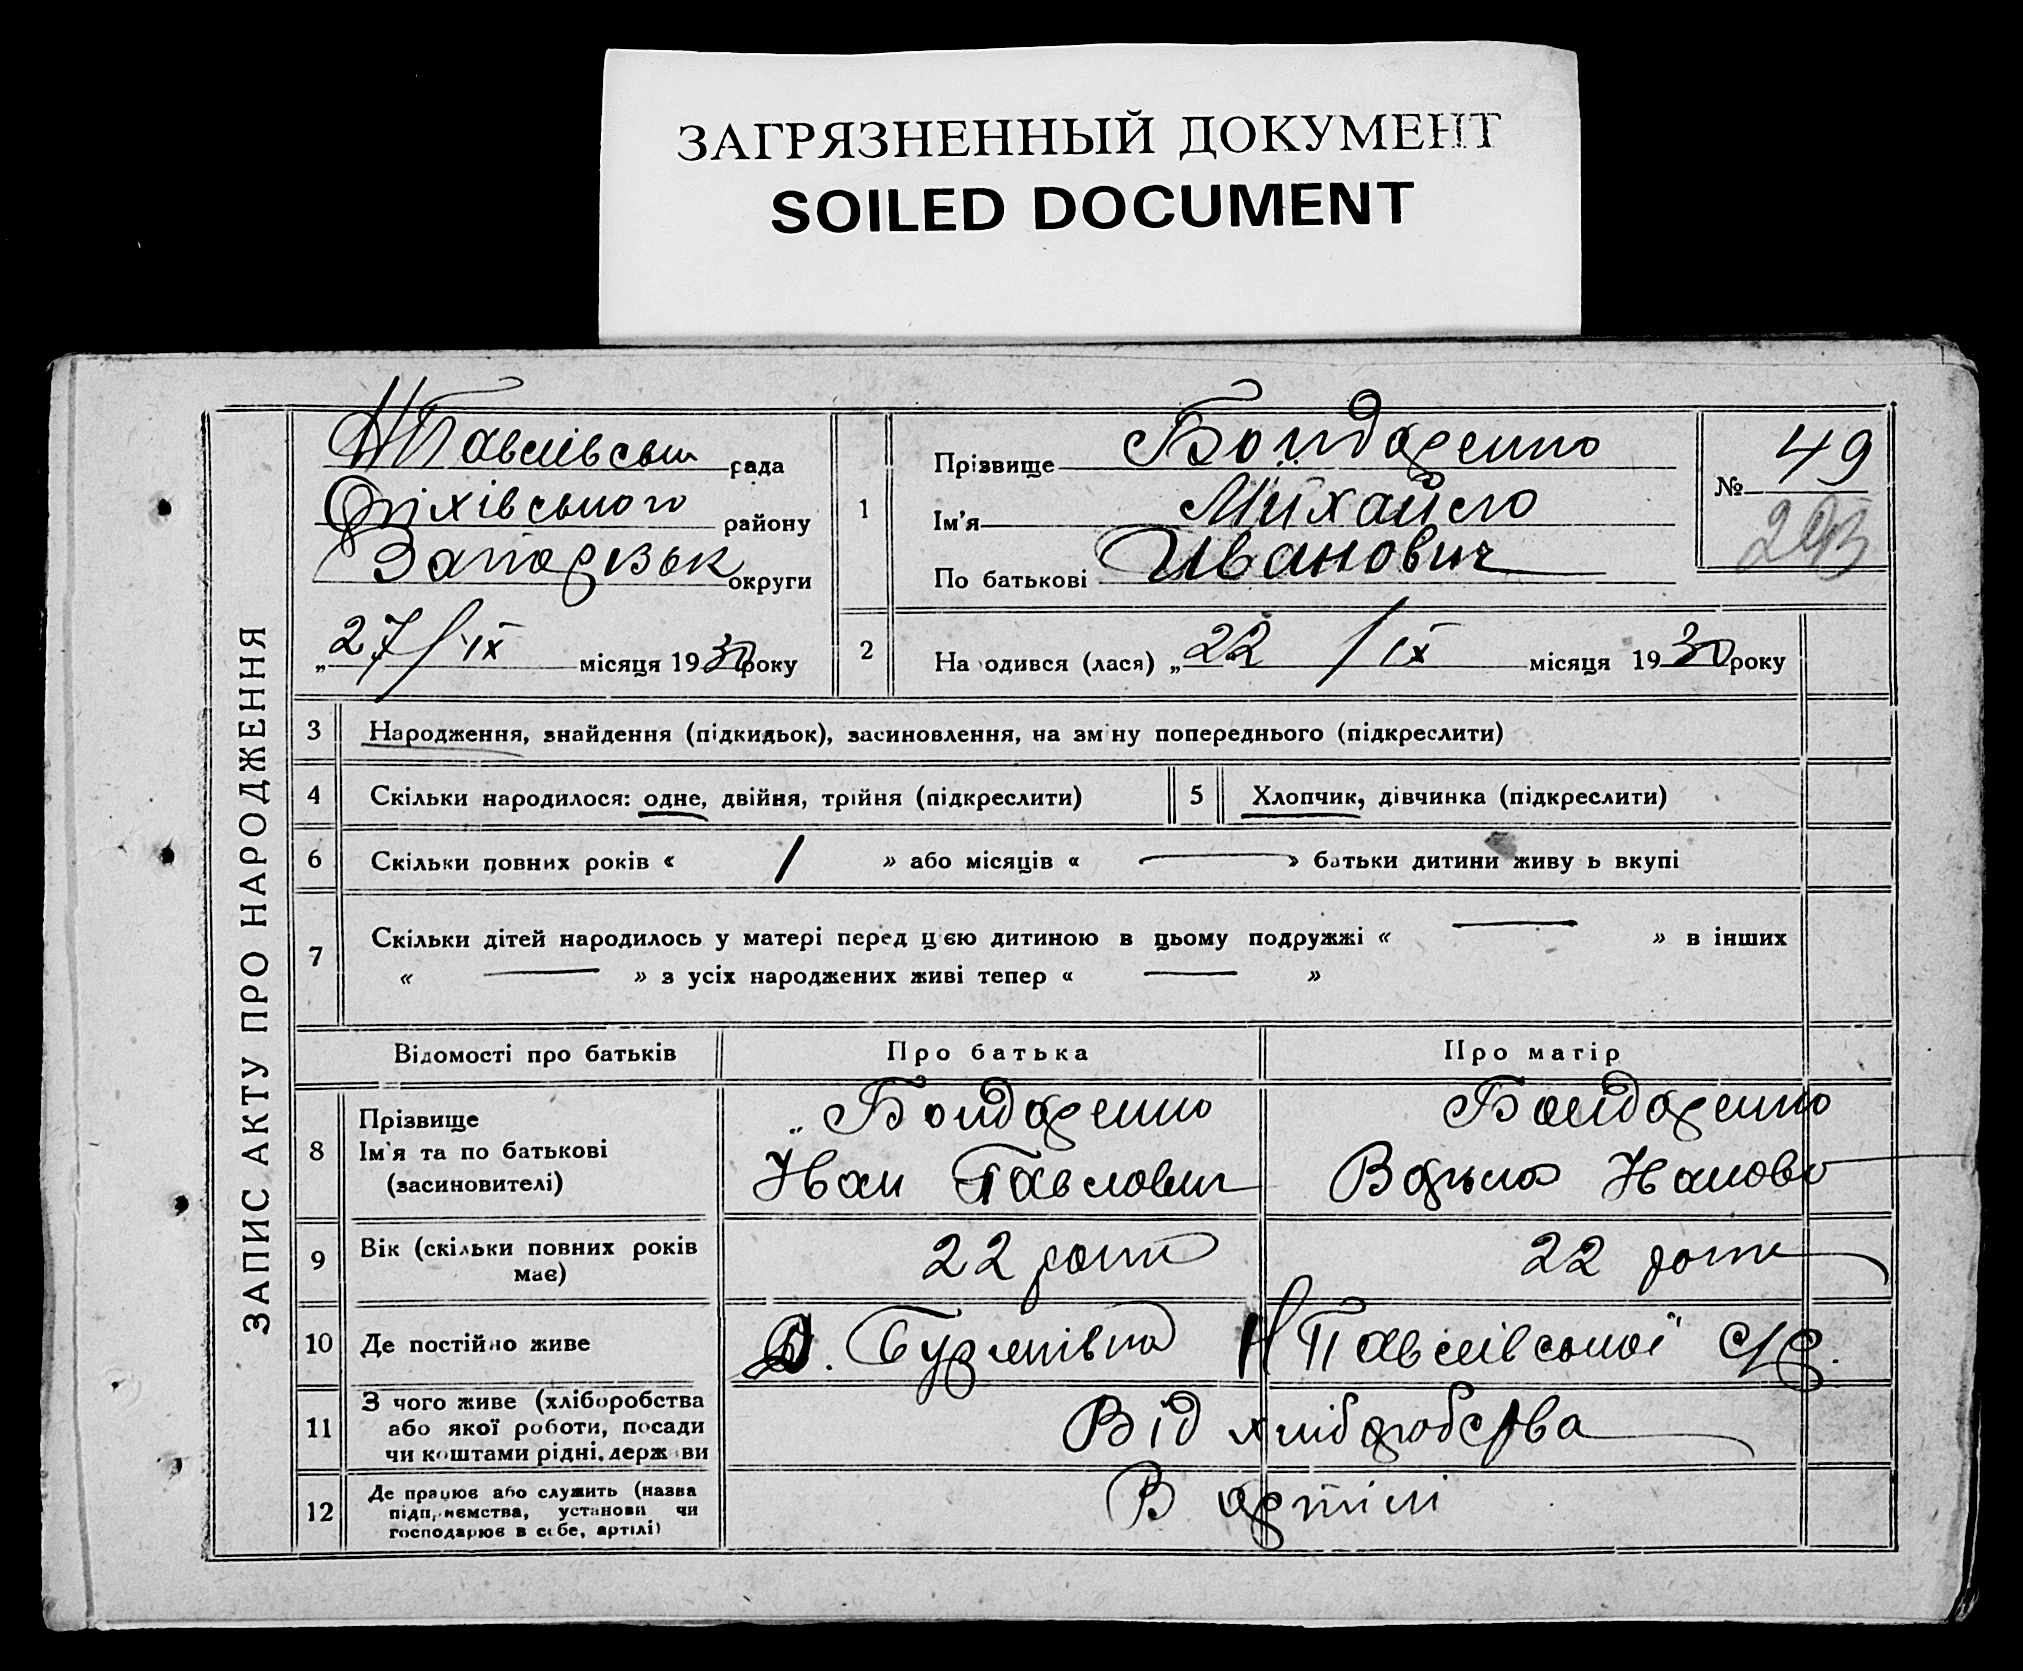 ЗАГРЯЗНЕННЫЙ ДОКУМЕНТ
SOILED DOCUMENT
ЗАПИС АКТУ ПРО НАРОДЖЕННЯ
Н Павлівськ рада
Оріхівського району
Запорізьк округи
„27/ІХ місяця 1930 року
1
Прізвище Бондаренко
Ім'я Михайло
По батькові Иванович
№ 49
293
2
На одився (лася) „22/ІХ місяця 1930 року
3 Народження, знайдення (підкидьок), засиновлення, на зм ну попереднього (підкреслити)
4 Скільки народилося: одне, двійня, трійня (підкреслити) 5 Хлопчик, дівчинка (підкреслити)
6 Скільки повних років « 1 » або місяців « — » батьки дитини живу ь вкупі
7 Скільки дітей народилось у матері перед цією дитиною в цьому подружжі « — » в інших
« — » з усіх народжених живі тепер « — »
Відомості про батьків Про батька Про матір
8 Прізвище
Ім'я та по батькові
(засиновителі)
Бондаренко
Иван Павлович
Бондаренко
Ивановн
9 Вік (скільки повних років
має)
22 роки 22 роки
10 Де постійно живе Н Павлівської с/р.
11 З чого живе (хліборобства
або якої роботи, посади
чи коштами рідні, держави
Від хліборобства
12 Де працює або служить (назва
підприємства, установи чи
господарює в себе, артілі)
В артілі